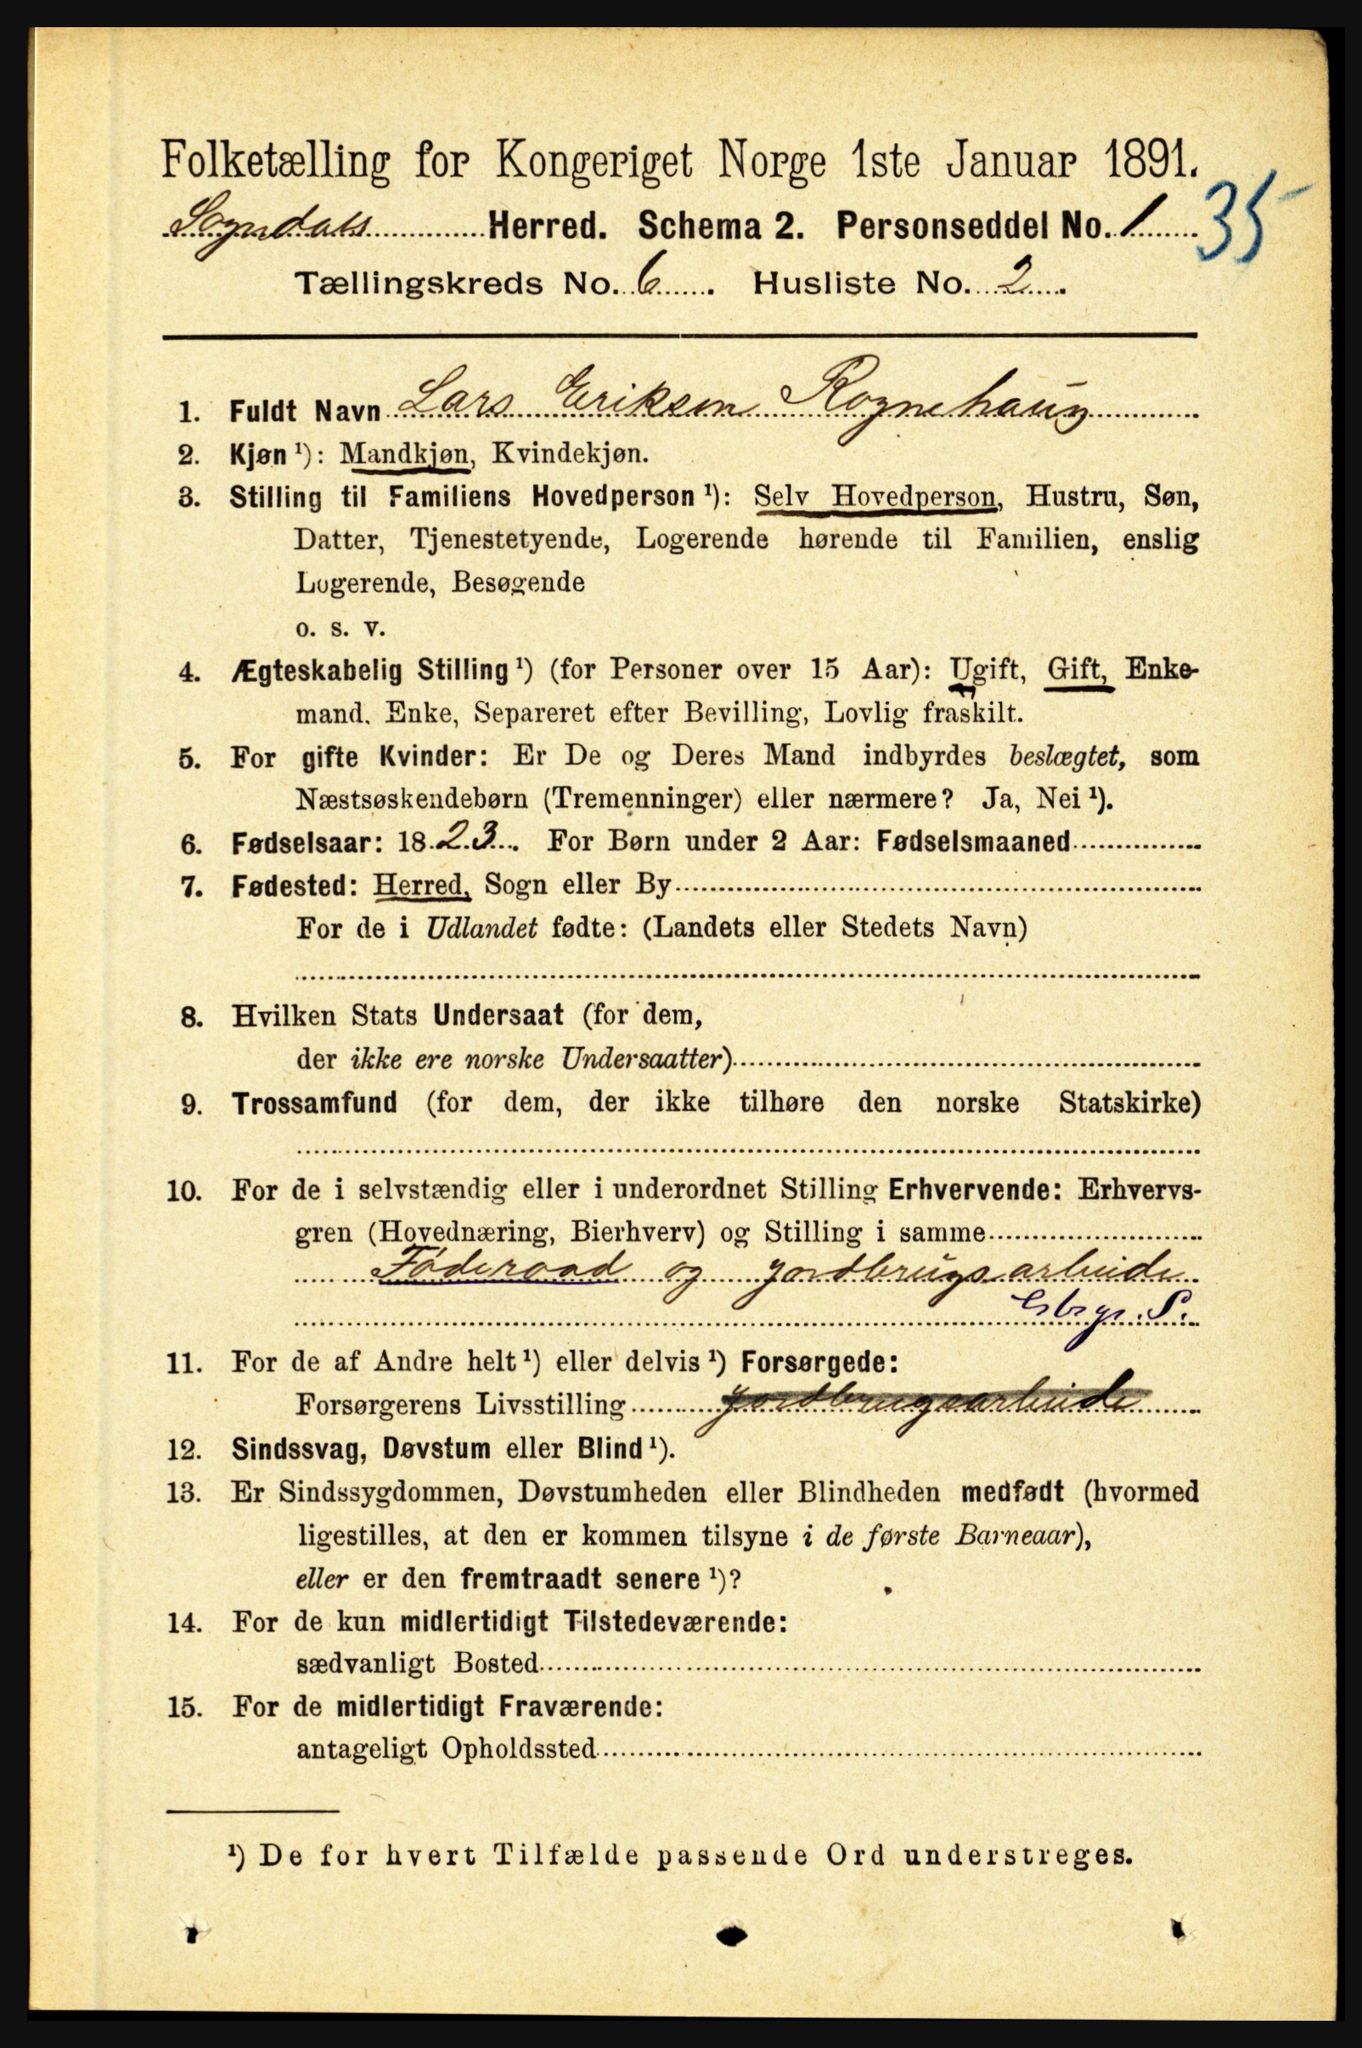 Folketælling for Kongeriget Norge 1ste Januar 1891.
Sogndals Herred. Schema 2. Personseddel No. 1 35
Tællingskreds No. 6. Husliste No. 2.
1. Fuldt Navn Lars Eriksen Rognehaug
2. Kjøn ¹): Mandkjøn, Kvindekjøn.
3. Stilling til Familiens Hovedperson ¹): Selv Hovedperson, Hustru, Søn,
Datter, Tjenestetyende, Logerende hørende til Familien, enslig
Logerende, Besøgende
o. s. v.
4. Ægteskabelig Stilling ¹) (for Personer over 15 Aar): Ugift, Gift, Enke-
mand, Enke, Separeret efter Bevilling, Lovlig fraskilt.
5. For gifte Kvinder: Er De og Deres Mand indbyrdes beslægtet, som
Næstsøskendebørn (Tremenninger) eller nærmere? Ja, Nei ¹).
6. Fødselsaar: 1823. For Børn under 2 Aar: Fødselsmaaned
7. Fødested: Herred, Sogn eller By
For de i Udlandet fødte: (Landets eller Stedets Navn)
8. Hvilken Stats Undersaat (for dem,
der ikke ere norske Undersaatter)
9. Trossamfund (for dem, der ikke tilhøre den norske Statskirke)
10. For de i selvstændig eller i underordnet Stilling Erhvervende: Erhvervs-
gren (Hovednæring, Bierhverv) og Stilling i samme
Føderaad og jordbrugsarbeide
11. For de af Andre helt ¹) eller delvis ¹) Forsørgede:
Forsørgerens Livsstilling jordbrugsarbeide
12. Sindssvag, Døvstum eller Blind ¹).
13. Er Sindssygdommen, Døvstumheden eller Blindheden medfødt (hvormed
ligestilles, at den er kommen tilsyne i de første Barneaar),
eller er den fremtraadt senere ¹)?
14. For de kun midlertidigt Tilstedeværende:
sædvanligt Bosted
15. For de midlertidigt Fraværende:
antageligt Opholdssted
¹) De for hvert Tilfælde passende Ord understreges.